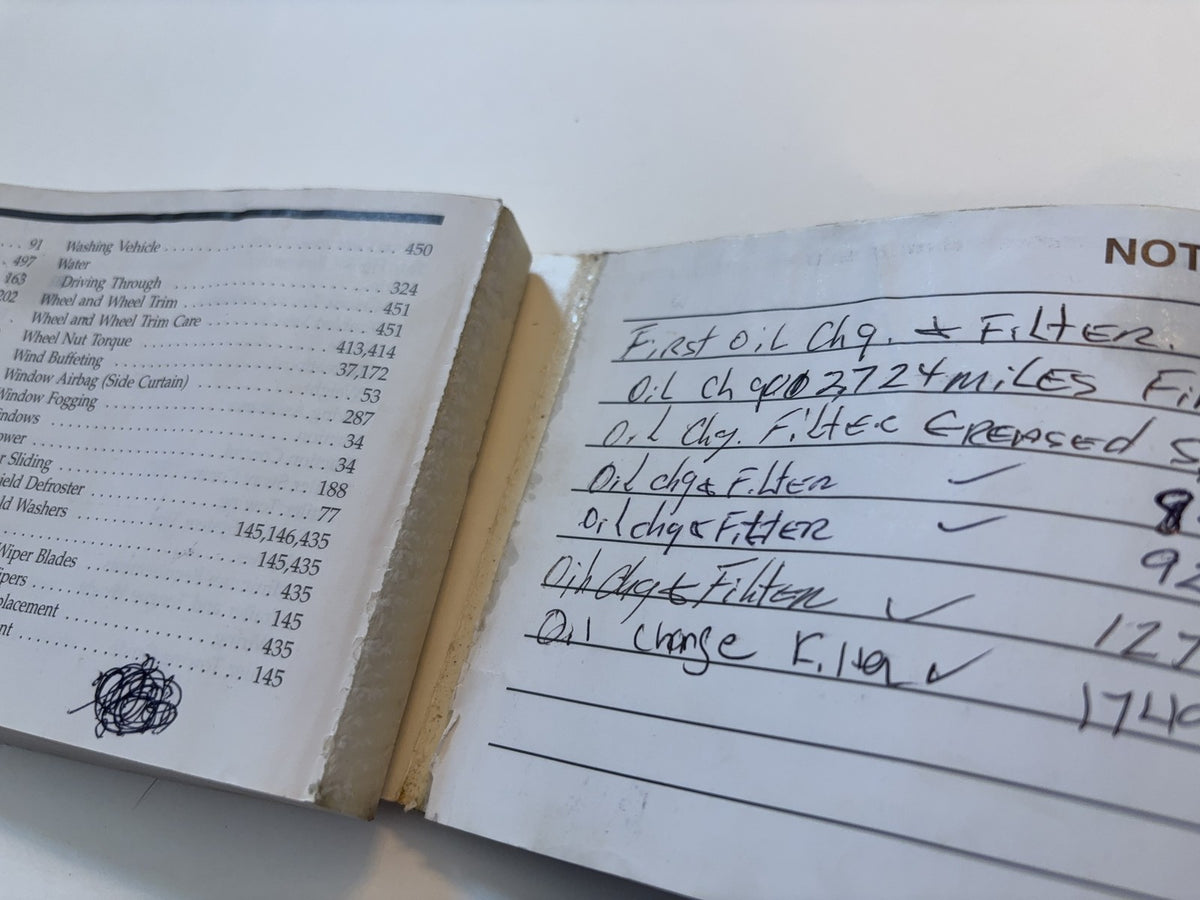 91
497
163
202
Washing Vehicle 450
Water
Driving Through 324
Wheel and Wheel Trim 451
Wheel and Wheel Trim Care 451
Wheel Nut Torque 413,414
Wind Buffeting 37,172
Window Airbag (Side Curtain) 53
Window Fogging 287
34
34
Sliding 188
Defroster 77
Washers 145,146,435
145,435
Wiper Blades 435
145
435
145
NOT
First Oil Chg. & Filter.
Oil chg 2,724 miles
Oil Chg. Filter Greased
Oil chg & Filter ✓ 8
Oil chg & Filter ✓ 92
Oil Chg & Filter ✓ 127
Oil change Filter ✓ 174